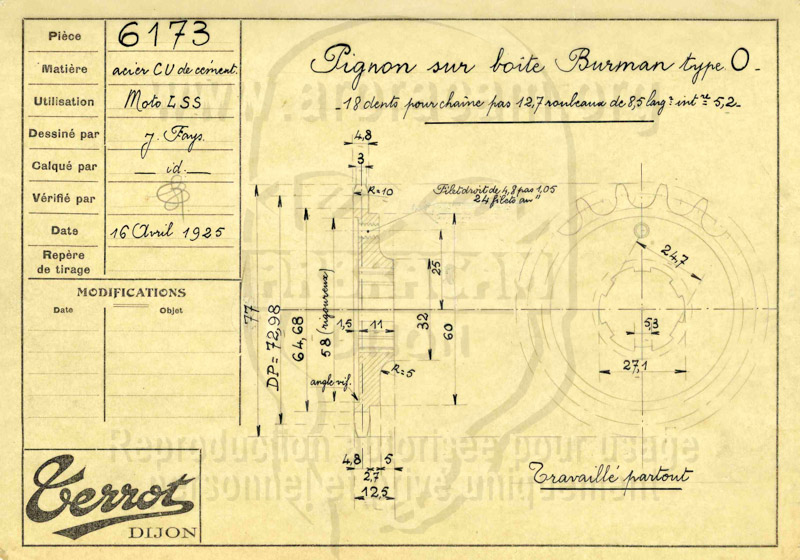 Pièce 6173
Matière acier CU de cément.
Utilisation Moto LSS
Dessiné par J. Fays.
Calqué par — id. —
Vérifié par
Date 16 Avril 1925
Repère
de tirage
MODIFICATIONS
Date Objet
Terrot
DIJON
Pignon sur boite Burman type O
18 dents pour chaîne pas 12,7 rouleaux de 8,5 larg.r int.re 5,2
4,8
3
R=10
Filet droit de 4,8 pas 1,05
24 filets au "
77
DP = 72,98
64,68
58 (rigoureux)
1,5
11
25
32
60
R=5
angle vif.
4,8
5
2,7
12,5
24,7
5,3
27,1
Travaillé partout
Reproduction autorisée pour usage
personnel et privé uniquement